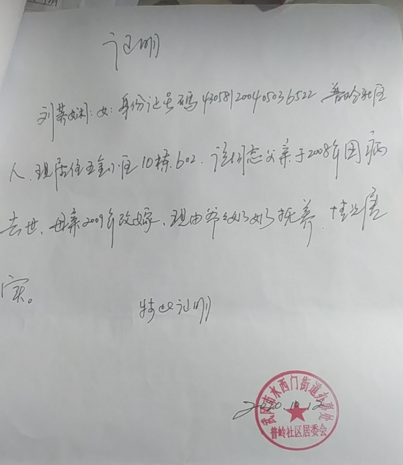 证明
刘慕娴:女:身份证号码430581200405036522 普岭社区
人.现居住五金小区10栋602.该同志父亲于2008年因病
去世.母亲2009年改嫁.现由奶奶抚养.情况属
实。
特此证明
武冈市水西门街道办事处
普岭社区居委会